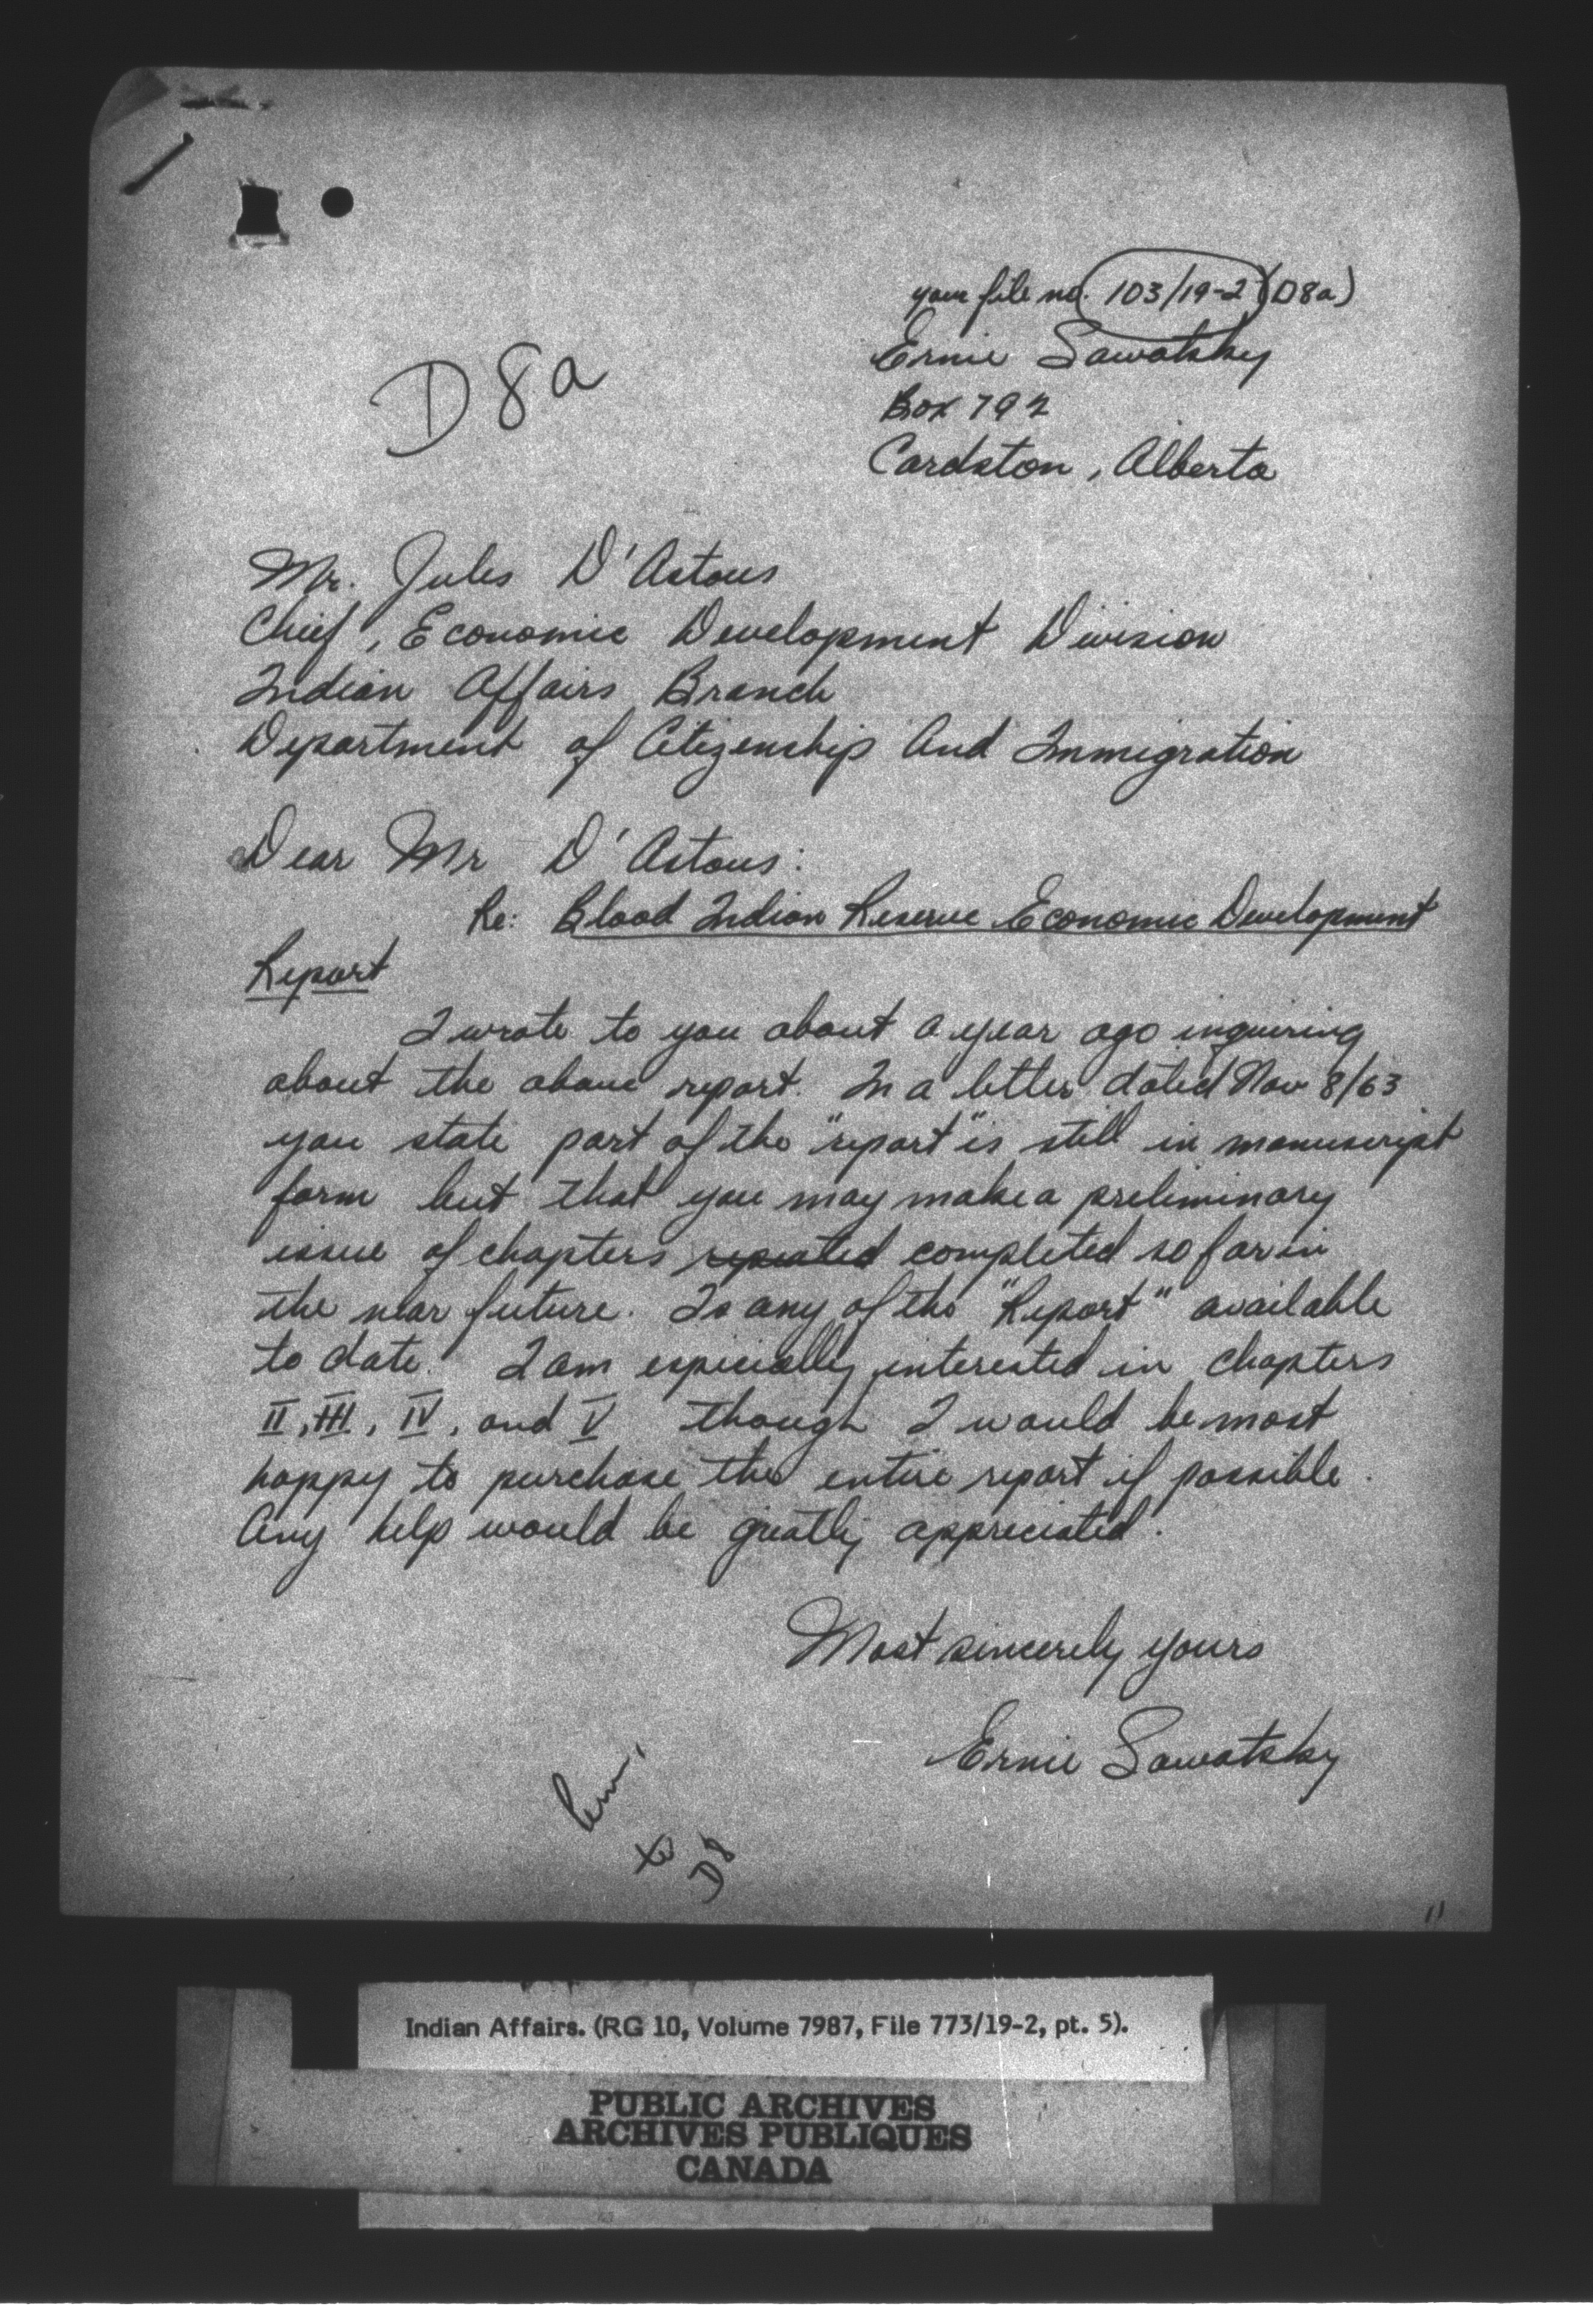 your file no. 103/19-2 (D8a)
Ernie Sawatsky
Box 792
Cardston, Alberta
D8a
Mr. Jules D'Astous
Chief, Economic Development Division
Indian Affairs Branch
Department of Citizenship And Immigration
Dear Mr D'Astous:
Re: Blood Indian Reserve Economic Development
Report
I wrote to you about a year ago inquiring
about the above report. In a letter dated Nov 8/63
you state part of the "report" is still in manuscript
form but that you may make a preliminary
issue of chapters repeated completed so far in
the near future. Is any of the "Report" available
to date. I am especially interested in chapters
II, III, IV, and V though I would be most
happy to purchase the entire report if possible.
Any help would be greatly appreciated.
Most sincerely yours
Ernie Sawatsky
to
D8
11
Indian Affairs. (RG 10, Volume 7987, File 773/19-2, pt. 5).
PUBLIC ARCHIVES
ARCHIVES PUBLIQUES
CANADA